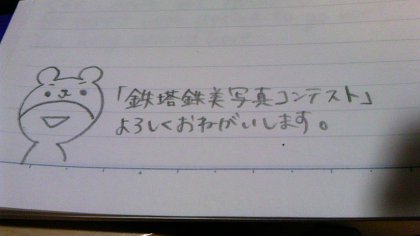 「鉄塔鉄美写真コンテスト」
よろしくおねがいします。